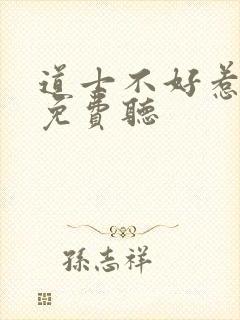 道士不好惹
免費聽
孫志祥